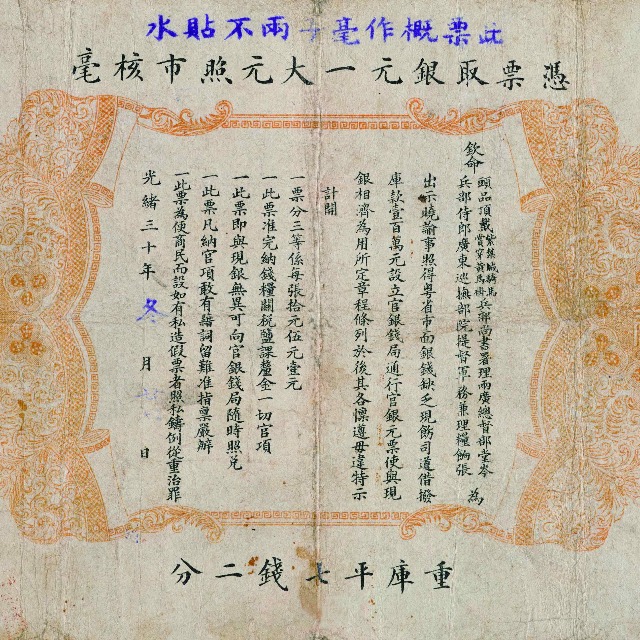 此票概作毫子兩不貼水
憑票取銀元一大元照市核毫
欽命
頭品頂戴紫禁城騎馬賞穿黃馬褂兵部尚書署理兩廣總督部堂岑
兵部侍郎廣東巡撫部院提督軍務兼理糧餉張 為
出示曉諭事照得粵省市面銀錢缺乏現飭司道借撥
庫款壹百萬元設立官銀錢局通行官銀元票使與現
銀相濟為用所定章程條列於後其各懍遵毋違特示
計開
一票分三等係每張拾元伍元壹元
一此票准完納錢糧關稅鹽課釐金一切官項
一此票即與現銀無異可向官銀錢局隨時照兌
一此票凡納官項敢有藉詞留難准指稟嚴辦
一此票為便商民而設如有私造假票者照私鑄例從重治罪
光緒三十年 冬 月 日
重庫平七錢二分